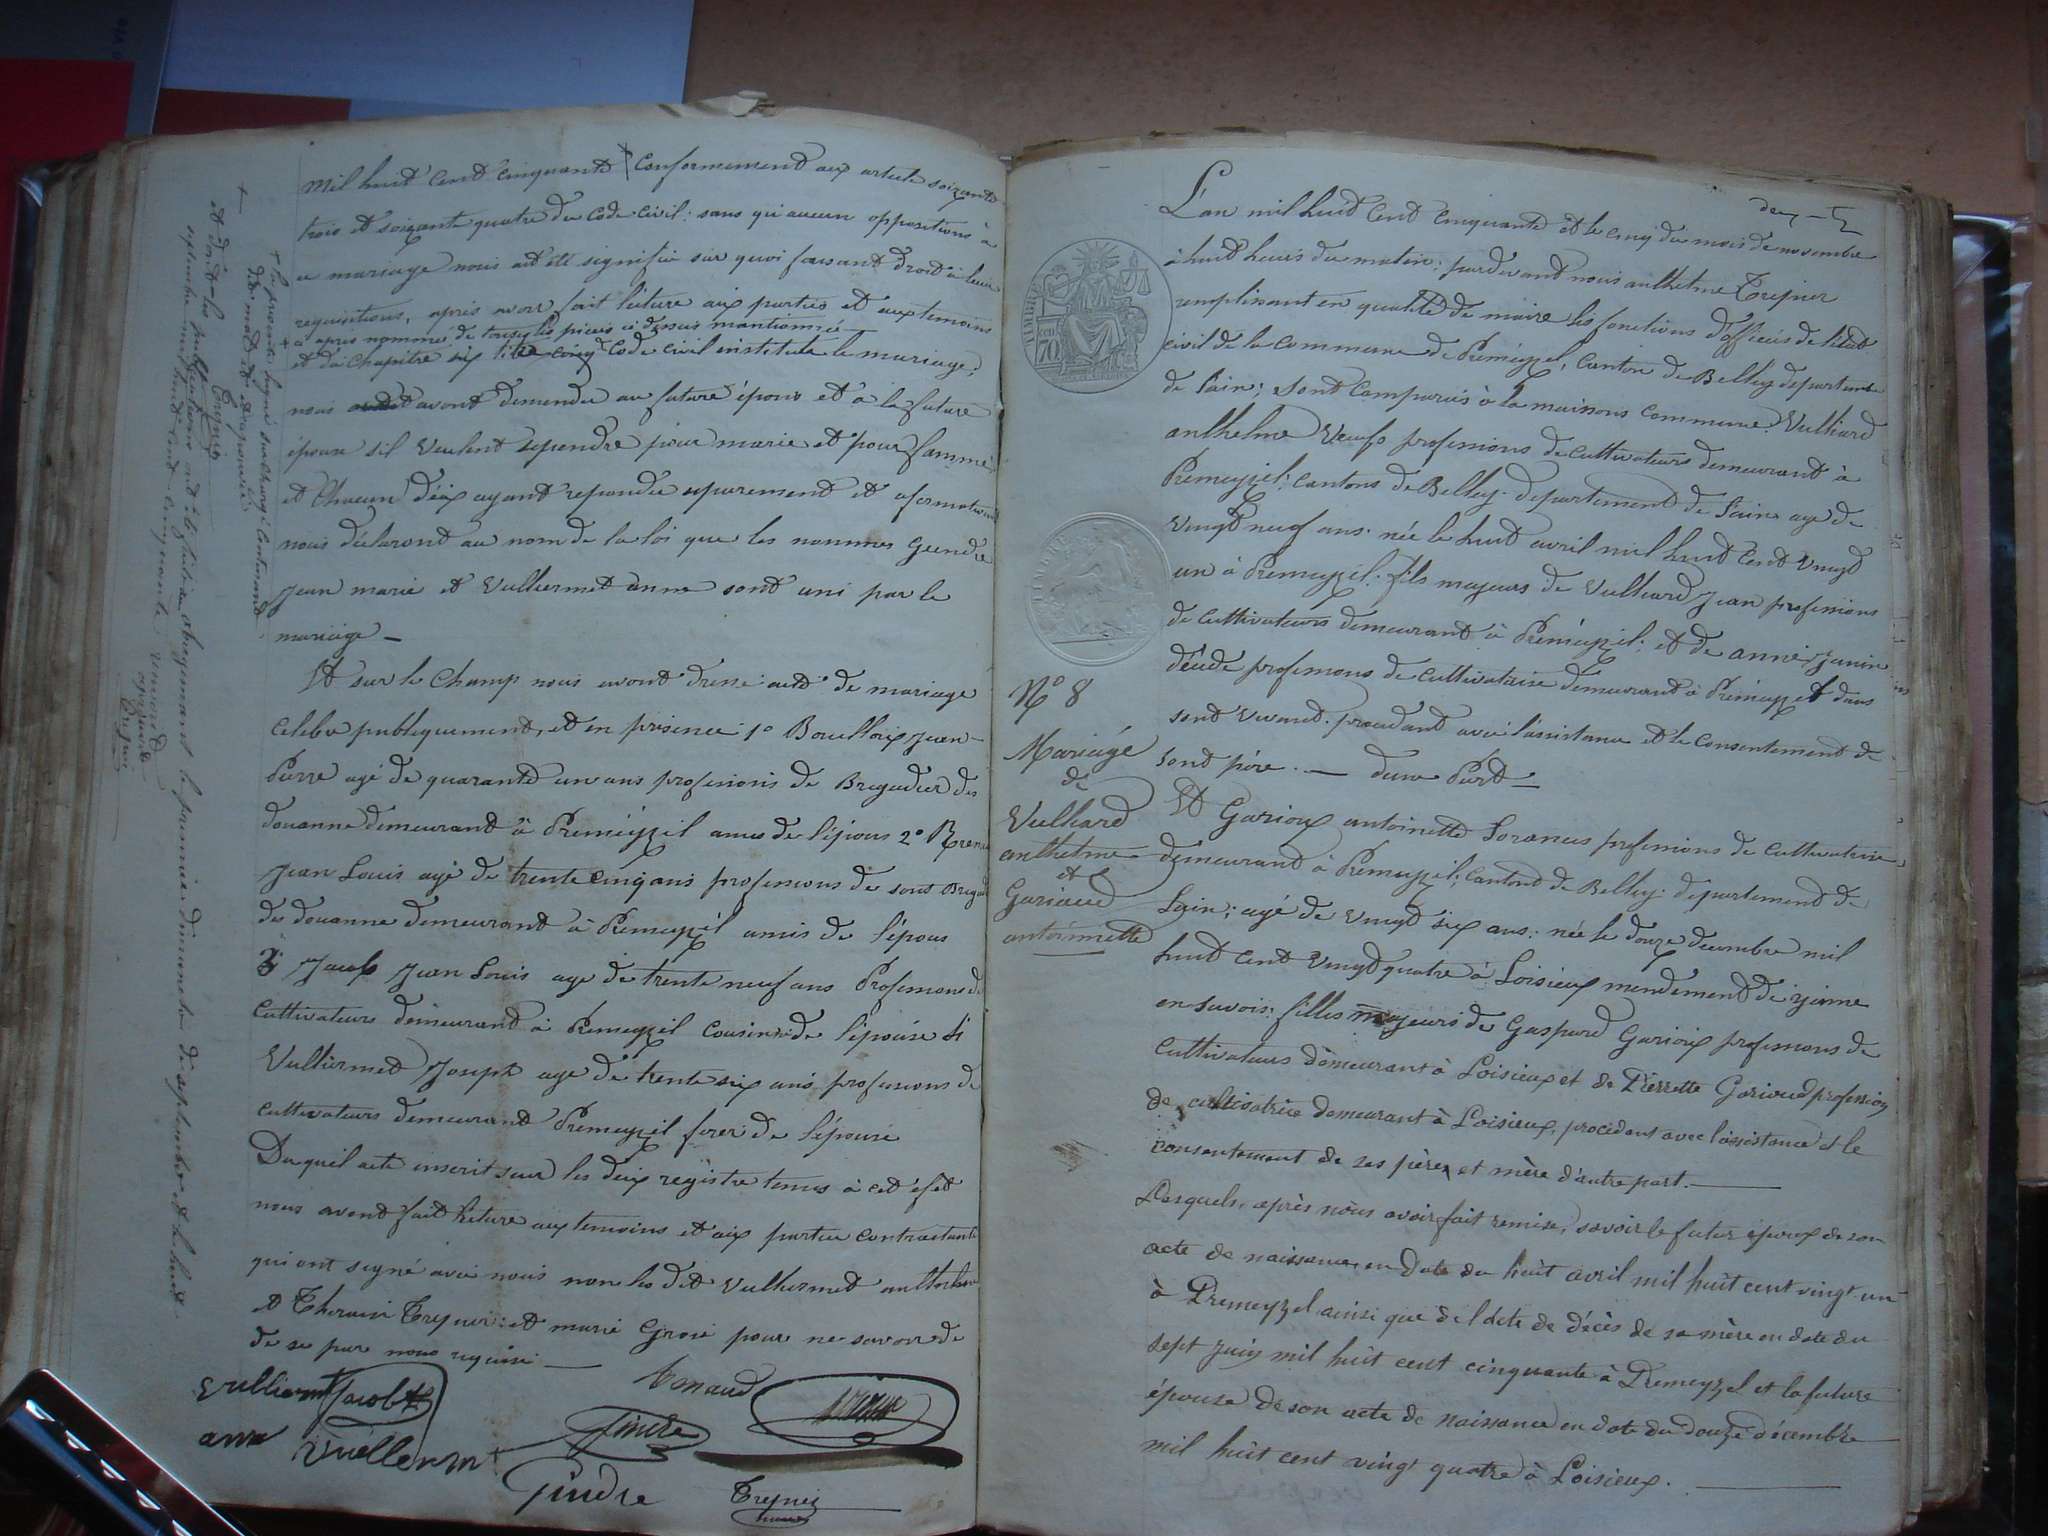 mil huit cent cinquante conformement aux article soixante
trois et soixante quatre du Code civil : sans qu aucun oppositions à
ce mariage nous ait été signifiée sur quoi faisant droit à leur
requisitions, apres avoir fait lecture aux parties et aux temoins
ci apres nommé de toutes les pieces ci dessus mantionnée
et du Chapitre six code civil institulé le mariage.
nous avont demender au future épous et à la future
épouse sil veulent se prendre pour marie et pour famme
et Chacun d'éux ayant repondu separement et afirmativement
nous déclaront au nom de la loi que les nommes Geindre
Jean marie et Vulliermet anne sont uni par le
mariage —
Et sur le Champ nous avont dressé acte de mariage
celebre publiquement, et en presence 1º Jean
Pierre agé de quarante un ans professions de Brigadier des
douanne demeurant à Premeyzel amis de l'épous 2º
Jean Louis agé de trente cinq ans professions de sous Brigad
des douanne demeurant à Premeyzel amis de l'épous
3º Jacob Jean Louis age de trente neuf ans Professions de
Cultivateur demeurant à Premeyzel cousin de l'épouse 4
Vulliermet Joseph age de trente six ans professions de
cultivateurs demeurant Premeyzel frere de l'épouse
Du quel acte inscrit sur les deux registre tenus à cet éfet
nous avont fait lecture aux temoins et aux partie contractante
qui ont signé avec nous non les dit Vulliermet anthelme
et Trepier et marie pour ne savoir de
de ce par nous requise —
Renaud
Jacob
anne Vuellermet
Gindre
Gindre
Trepier
maire
+ la presente ligne surchargé Contenant
dix mots et aprouvée
Trepier
+
et dont les publications ont été faite
septembre mil huit cent cinquante
le premier dimanche de septembre et le huit
renvoi
aprouvé
Trepier
L'an mil huit cent cinquante et le cinq du mois de novembre
à huit heurs du matin : pardevant nous anthelme Trepier
remplissant en qualité de maire les fonctions d'officiers de l'état
civil de la commune de Preméyzel, Canton de Belley departement
de l'ain ; sont comparus à la maisons commune Vulliard
anthelme Veufs professions de cultivateurs demeurant à
Premeyzel : cantons de Belley departement de l'ain age de
vingt neuf ans : née le huit avril mil huit cent vingt
un à Premeyzel : fils majeurs de Vulliard Jean professions
de cultivateurs demeurant à Premeyzel : et de anne Janin
décédé professions de cultivatrise demeurant à Premeyzel dans
sont vivant : procedant avec l'assistance et le consentement de
sont père — dune Part —
Et Gariou antoinette professions de cultivatrise
demeurant à Premeyzel, Cantons de Belley département de
Lain ; agé de vingt six ans : née le douze decembre mil
huit cent vingt quatre à Loisieux mendement de yenne
en Savois : filles majeurs de Gaspard Garioux professions de
cultivateurs demeurant à Loisieux et de Pierrette Gorioud profession
de cultivatrice demeurant à Loisieux, procédant avec l'assistance et le
consentement de ses père et mère d'autre part. —
Lesquels, après nous avoir fait remise, savoir le futur époux de son
acte de naissance en date du huit avril mil huit cent vingt-un
à Premeyzel ainsi que de l'acte de décès de sa mère en date du
sept juin mil huit cent cinquante à Premeyzel et la future
épouse de son acte de naissance en date du douze décembre
mil huit cent vingt quatre à Loisieux. —
TIMBRE
70
Nº 8
Mariage
de
Vulliard
anthelme
et
Garioud
antoinette